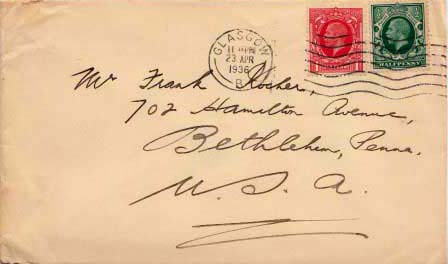 GLASGOW
11 30 PM
23 APR
1936
B
HALFPENNY
Mr Frank Kocher,
702 Hamilton Avenue,
Bethlehem, Penna.
U.S.A.